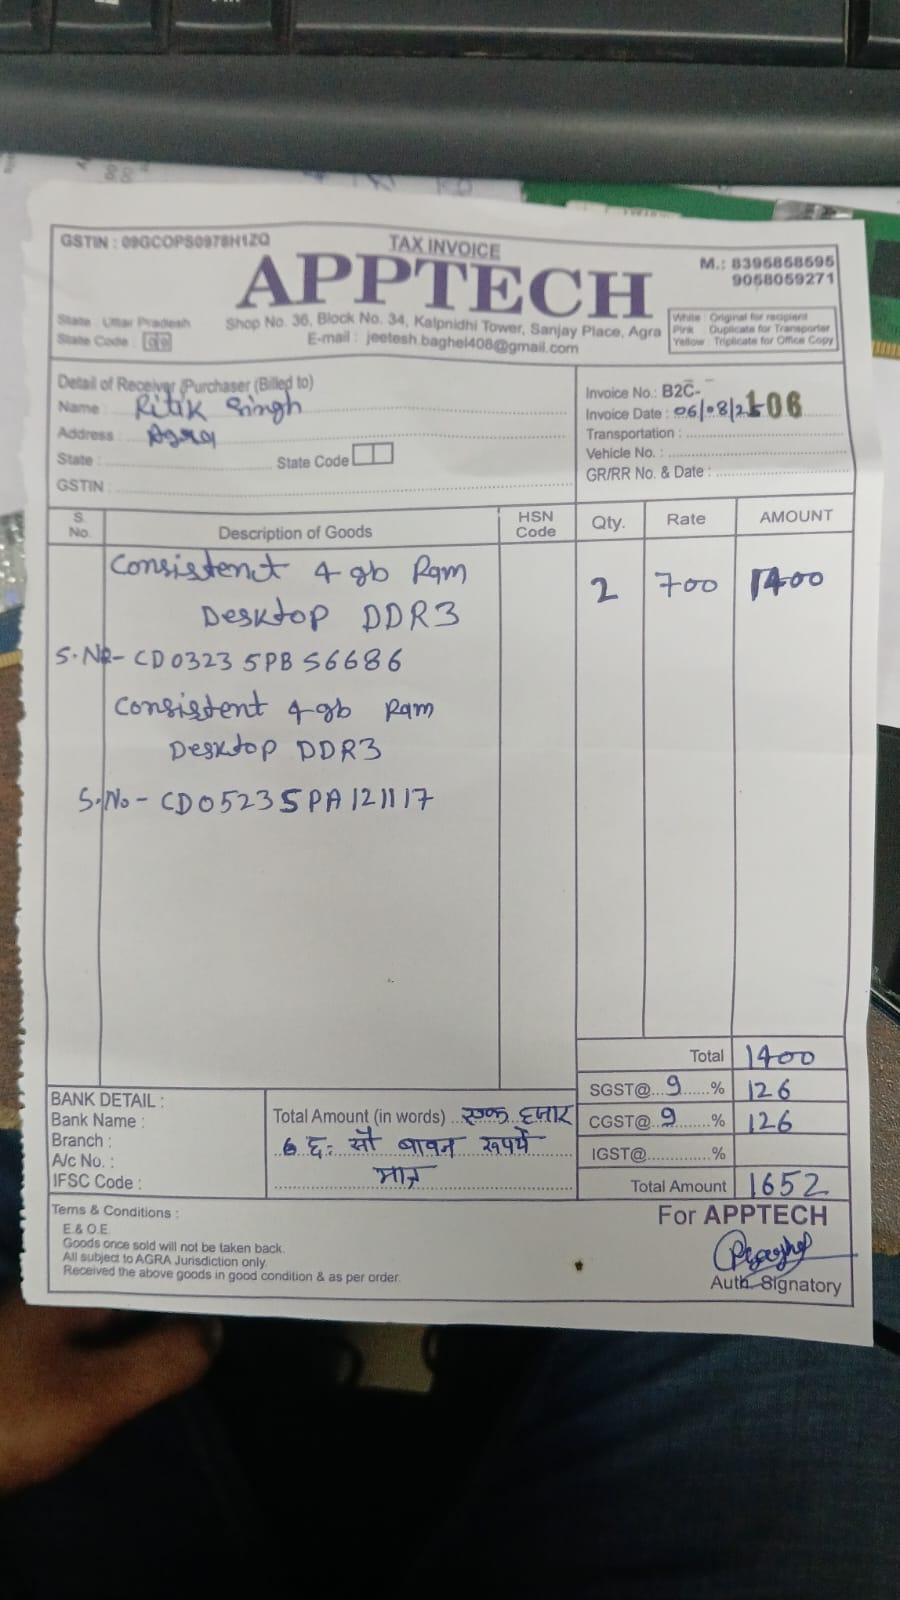 GSTIN : 09GCOPS0978H1ZQ
TAX INVOICE
M.: 8395858595
9058059271
APPTECH
State : Uttar Pradesh
State Code : 09
Shop No. 36, Block No. 34, Kalpnidhi Tower, Sanjay Place, Agra
E-mail : jeetesh.baghel408@gmail.com
White : Original for recipient
Pink : Duplicate for Transporter
Yellow : Triplicate for Office Copy
Detail of Receiver /Purchaser (Billed to)
Name : Ritik Singh
Address : Agra
State : State Code
GSTIN :
Invoice No.: B2C- 106
Invoice Date : 06/08/25
Transportation :
Vehicle No. :
GR/RR No. & Date :
S. No. Description of Goods HSN Code Qty. Rate AMOUNT
Consistent 4 gb Ram 2 700 1400
Desktop DDR3
S.No- CD03235PBS6686
Consistent 4 gb Ram
Desktop DDR3
S.No- CD05235PA121117
Total 1400
SGST@ 9 % 126
CGST@ 9 % 126
IGST@ %
Total Amount 1652
BANK DETAIL :
Bank Name :
Branch :
A/c No. :
IFSC Code :
Total Amount (in words) एक हजार
छः सौ बावन रूपये
मात्र
Terms & Conditions :
E.& O.E.
Goods once sold will not be taken back.
All subject to AGRA Jurisdiction only.
Received the above goods in good condition & as per order.
For APPTECH
Auth. Signatory